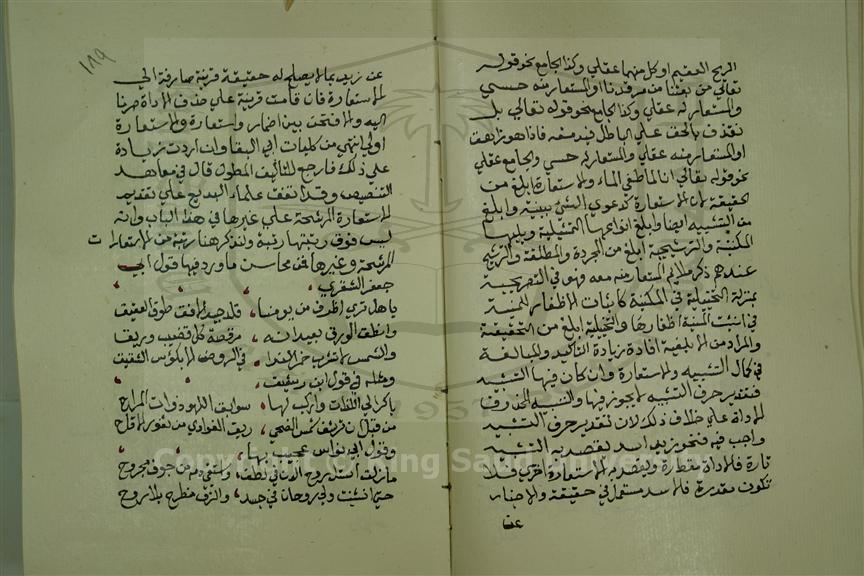 الريح العقيم او كل منهما عقلي وكذا الجامع نحو قوله
تعالى من بعثنا من مرقدنا او المستعار منه حسي
والمستعار له عقلي وكذا الجامع نحو قوله تعالى بل
نقذف بالحق على الباطل فيدمغه فاذا هو زاهق
او المستعار منه عقلي والمستعار له حسي والجامع عقلي
نحو قوله تعالى انا لما طغى الماء والاستعارة ابلغ من
الحقيقة لان الاستعارة كدعوى الشئ ببينة وابلغ
من التشبيه ايضا وابلغ انواعها التمثيلية ويليها
المكنية والترشيحية ابلغ من المجردة والمطلقة والترشيح
عندهم ذكر ملايم المستعار منه معه فهو في التصريحية
بمنزلة التخييلية في المكنية كاثبات الاظفار للمنية
في انشبت المنية اظفارها والتخييلية ابلغ من التحقيقية
والمراد من الابلغية افادة زيادة التاكيد والمبالغة
في كمال التشبيه والاستعارة وان كان فيها التشبيه
فتقدير حرف التشبيه لا يجوز فيها والتشبيه المحذوف
الاداة على خلاف ذلك لان تقدير حرف التشبيه
واجب فيه فنحو زيد اسد يقصد به التشبيه
تارة فالاداة مقدرة ويقصد به الاستعارة اخرى فلا
تكون مقدرة فالاسد مستعمل في حقيقته والاخبار
عن
١١٩
عن زيد بما لا يصلح له حقيقة قرينة صارفة الى
الاستعارة فان قامت قرينة على حذف الاداة صرنا
اليه والا فنحن بين اضمار واستعارة والاستعارة
اولى انتهى من كليات ابي البقا وان اردت زيادة
على ذلك فارجع للتاليف المطول قال في معاهد
التنصيص وقد اتفق علماء البديع على تقديم
الاستعارة المرشحة على غيرها في هذا الباب وانه
ليس فوق رتبتها رتبة ولنذكر هنا من الاستعارات
المرشحة وغيرها فمن محاسن ما ورد فيها قول ابي
جعفر الشقري
يا هل ترى اظرف من يومنا قلد جيد الافق طوق العقيق
وانطق الورق بعيدانه مرقصة كل قضيب وريق
والشمس لا تشرب خمر الندا في الروض الا بكؤس الشقيق
ومثله في قول ابن رشيق
باكر الى اللذات واركب لها سوابق اللهو ذوات المراح
من قبل ان ترشف شمس الضحى ريق الغوادي من ثغور الاقاح
وقول ابي نواس
ما زلت استل روح الدن في لطف واستقي دمه من جوف مجروح
حتى انثنيت ولي روحان في جسد والزق منطرح بلا روح